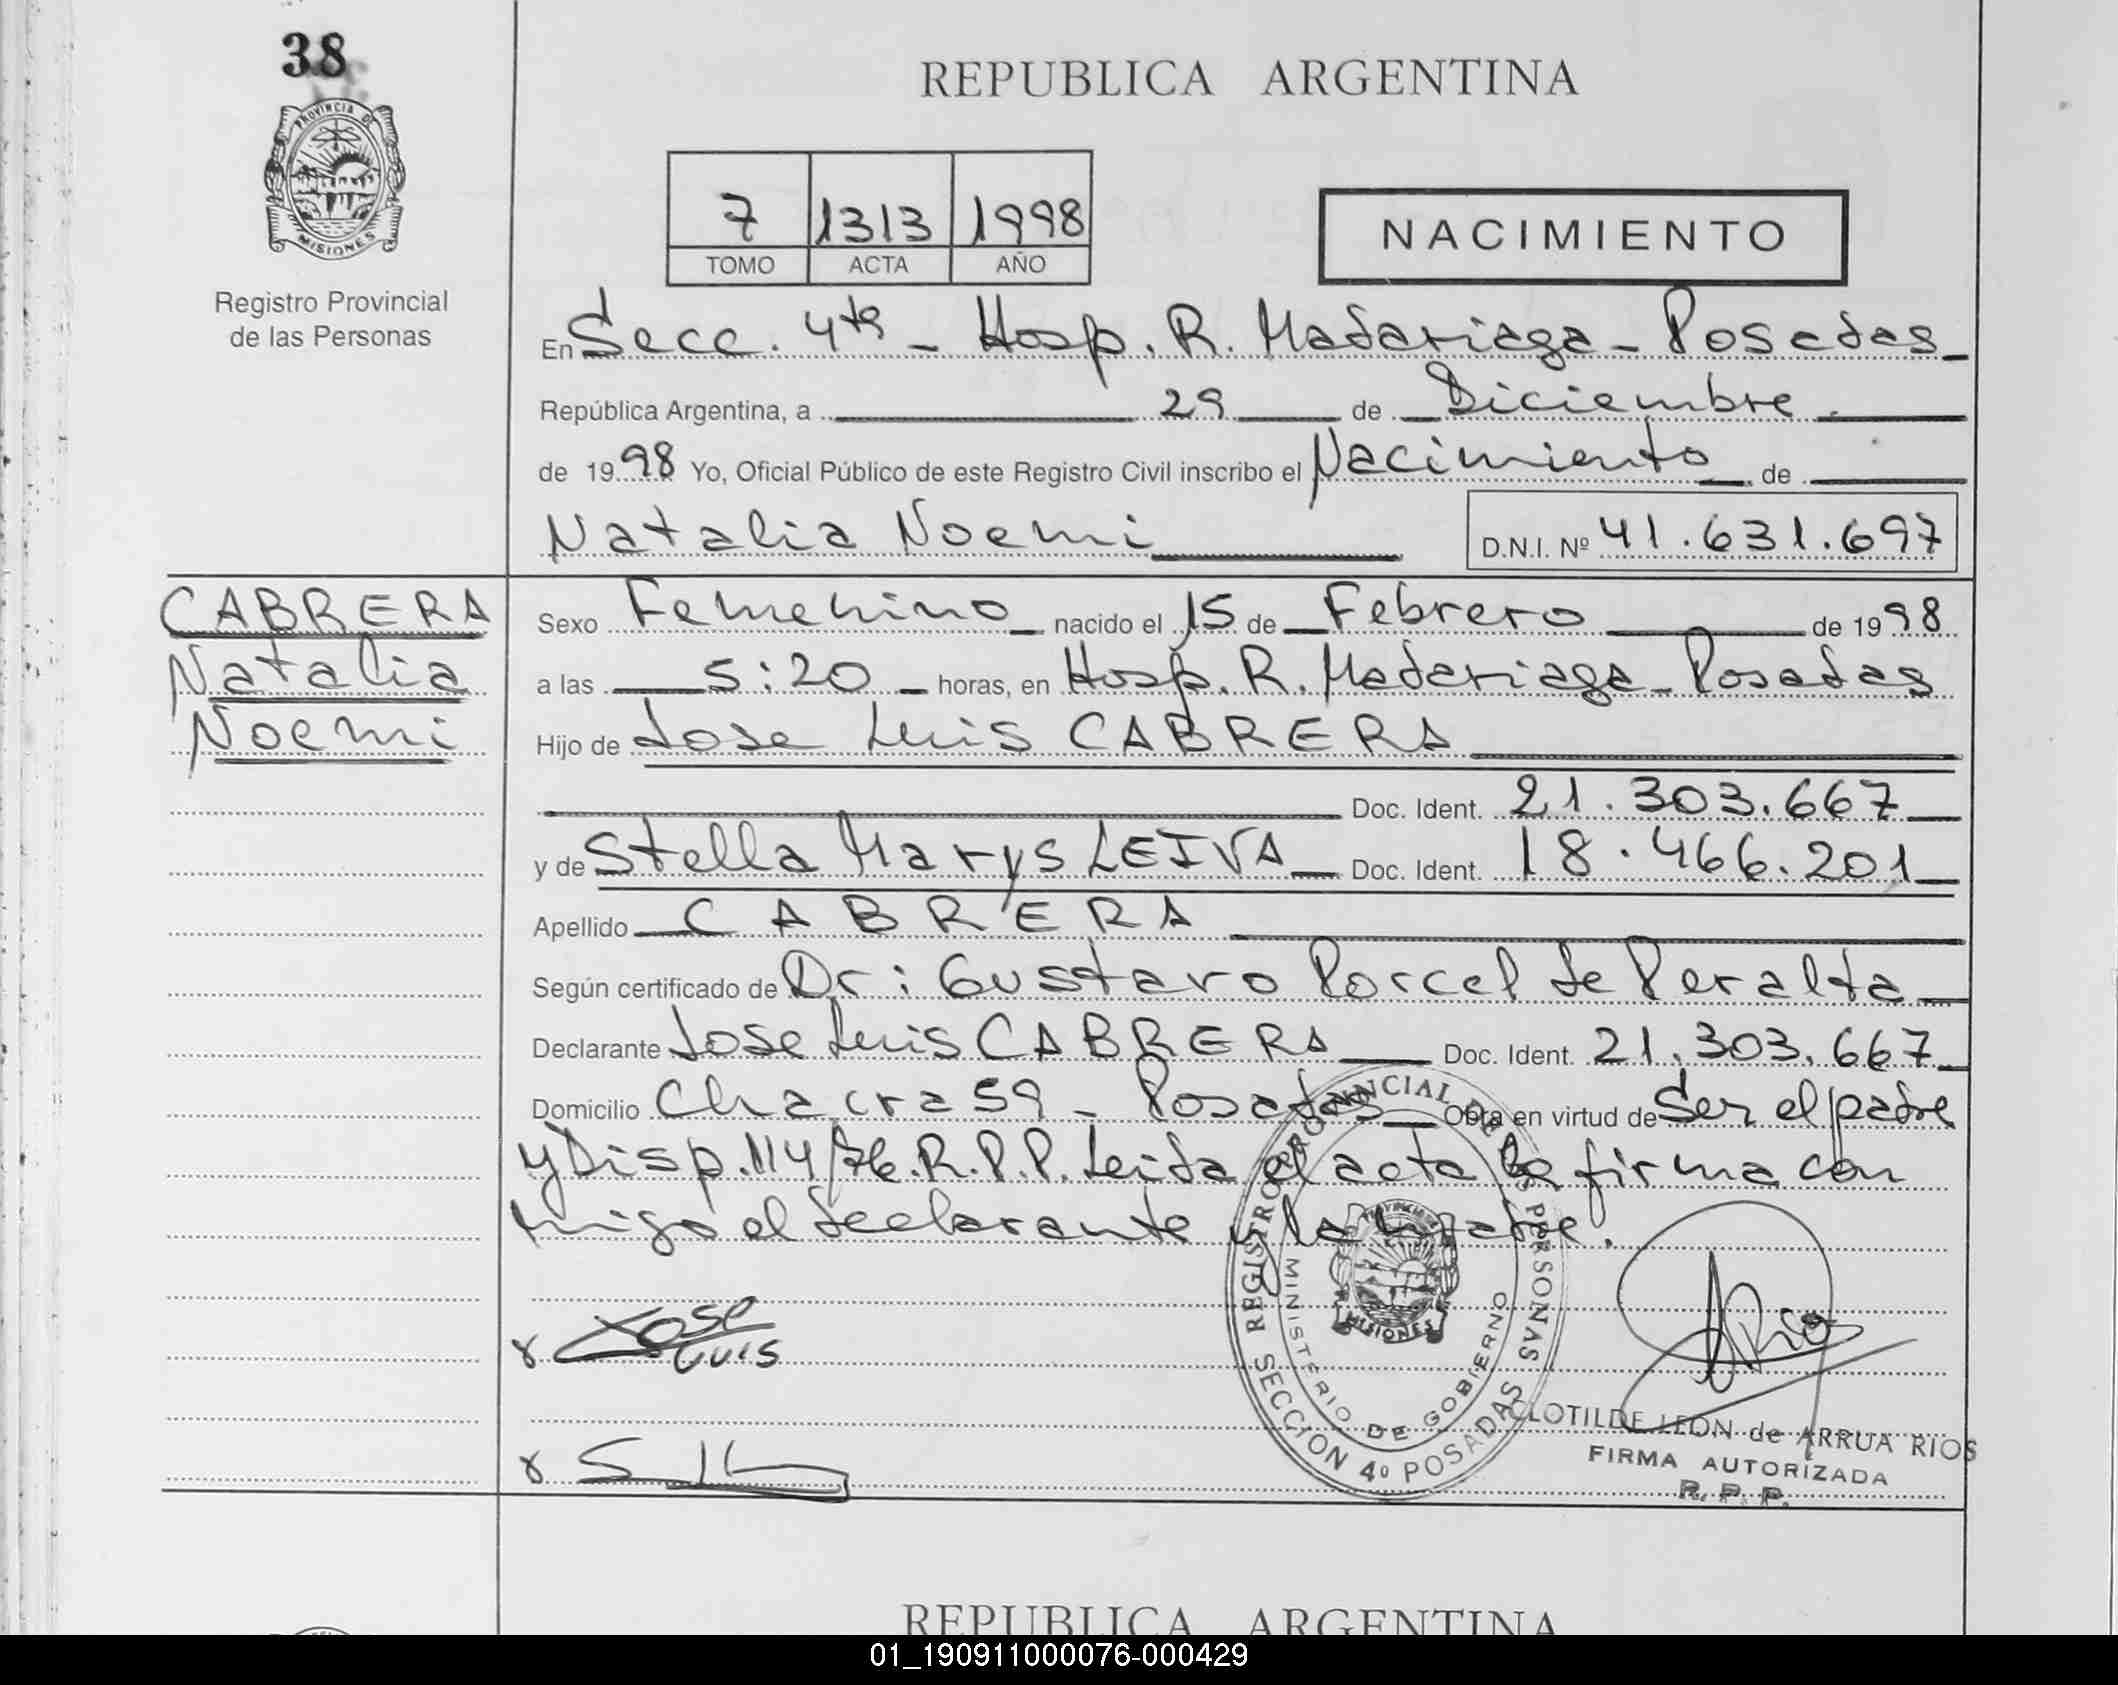 38
PROVINCIA DE
MISIONES
Registro Provincial
de las Personas
REPUBLICA ARGENTINA
7 1313 1998
TOMO ACTA AÑO
NACIMIENTO
En Secc. 4ta - Hosp. R. Madariaga - Posadas
República Argentina, a 29 de Diciembre
de 1998 Yo, Oficial Público de este Registro Civil inscribo el Nacimiento de
Natalia Noemi D.N.I. Nº 41.631.697
CABRERA
Natalia
Noemi
Sexo Femenino nacido el 15 de Febrero de 1998
a las 5:20 horas, en Hosp. R. Madariaga - Posadas
Hijo de Jose Luis CABRERA
Doc. Ident. 21.303.667
y de Stella Marys LEIVA Doc. Ident. 18.466.201
Apellido CABRERA
Según certificado de Dr: Gustavo Porcel de Peralta
Declarante Jose Luis CABRERA Doc. Ident. 21.303.667
Domicilio Chacra 59 - Posadas Obra en virtud de Ser el padre
y Disp. 114/76. R.P.P. Leida el acta la firma con
migo el declarante y la madre.
Jose
Luis
REGISTRO PROVINCIAL DE LAS PERSONAS
MINISTERIO DE GOBIERNO
MISIONES
SECCION 4º POSADAS
ARios
CLOTILDE LEON de ARRUA RIOS
FIRMA AUTORIZADA
R. P. P.
REPUBLICA ARGENTINA
01_190911000076-000429